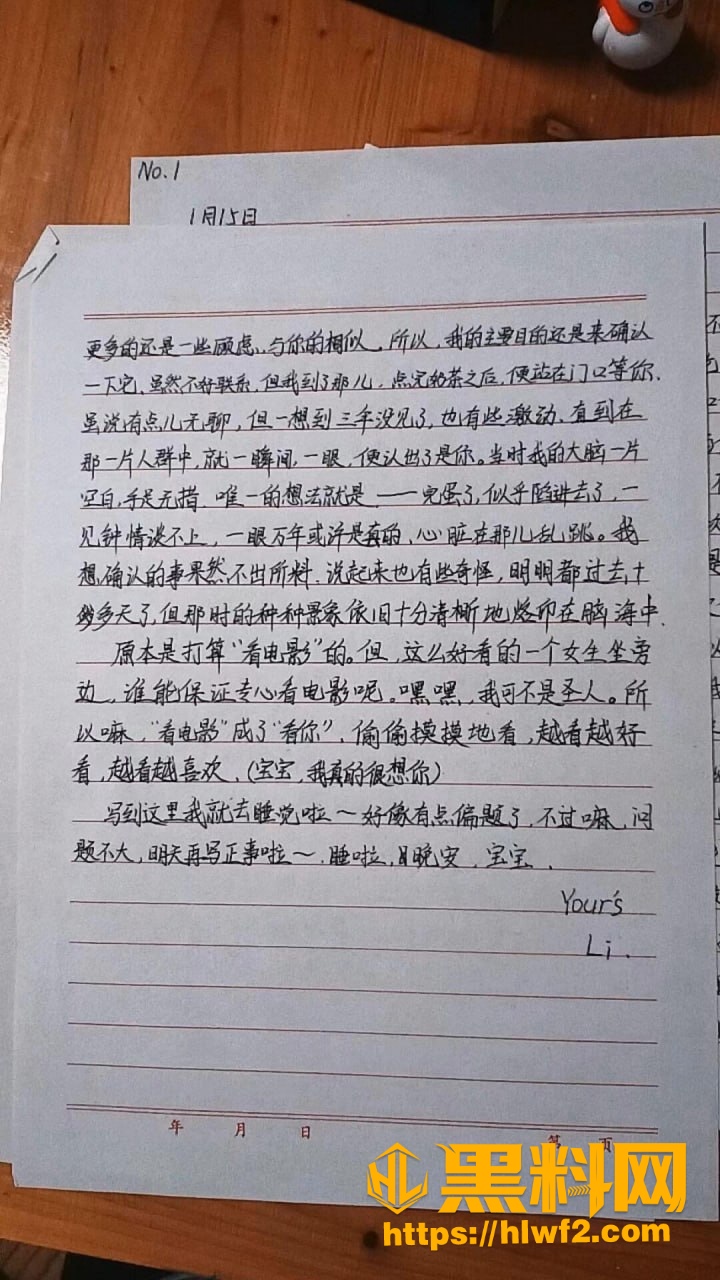 No.1
1月15日
更多的还是一些顾虑,与你的相似。所以,我的主要目的还是来确认
一下它,虽然不好联系,但我到了那儿,点完奶茶之后,便站在门口等你.
虽说有点儿无聊,但一想到三年没见了,也有些激动,直到在
那一片人群中,就一瞬间,一眼,便认出了是你。当时我的大脑一片
空白,手足无措,唯一的想法就是——完蛋了,似乎陷进去了,一
见钟情谈不上,一眼万年或许是真的,心脏在那儿乱跳。我
想确认的事果然不出所料,说起来也有些奇怪,明明都过去十
多天了,但那时的种种景象依旧十分清晰地烙印在脑海中.
原本是打算“看电影”的。但,这么好看的一个女生坐旁
边,谁能保证专心看电影呢。嘿嘿,我可不是圣人。所
以嘛,“看电影”成了“看你”,偷偷摸摸地看,越看越好
看,越看越喜欢,(宝宝,我真的很想你)
写到这里我就去睡觉啦~好像有点偏题了,不过嘛,问
题不大,明天再写正事啦~,睡啦,晚安,宝宝.
Your's
Li.
年 月 日 第 页
黑料网
https://hlwf2.com